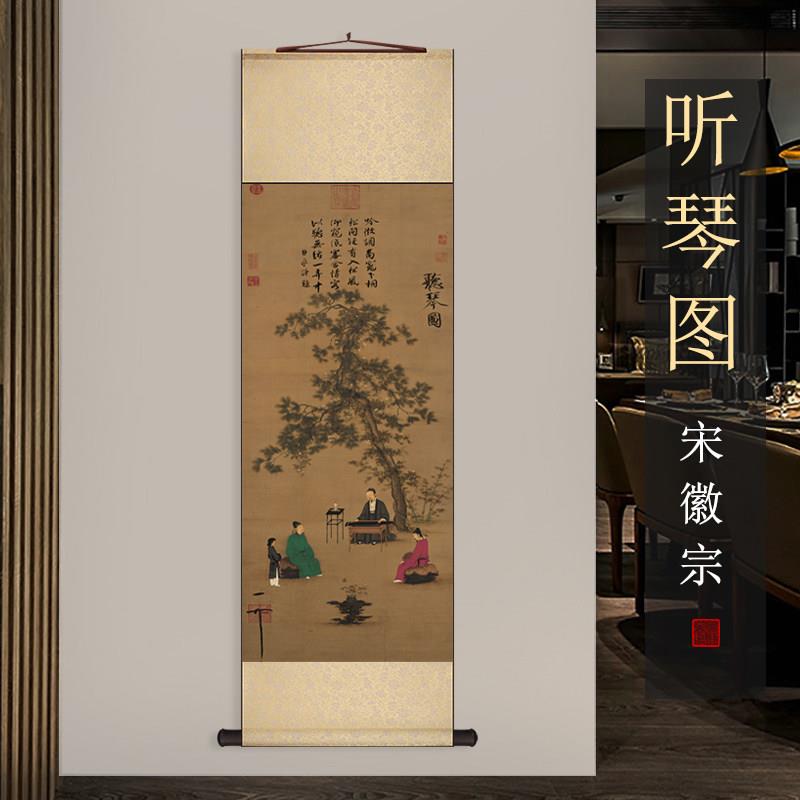 听琴图
宋徽宗
聽琴圖
吟徵調商竈下桐
松間疑有入松風
仰窺低審含情客
似聽無絃一弄中
臣京謹題